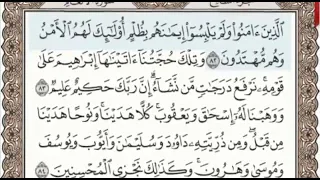 الَّذِينَ ءَامَنُوا۟ وَلَمْ يَلْبِسُوٓا۟ إِيمَـٰنَهُم بِظُلْمٍ أُو۟لَـٰٓئِكَ لَهُمُ الْأَمْنُ
وَهُم مُّهْتَدُونَ ٨٢ وَتِلْكَ حُجَّتُنَآ ءَاتَيْنَـٰهَآ إِبْرَٰهِيمَ عَلَىٰ
قَوْمِهِۦ نَرْفَعُ دَرَجَـٰتٍ مَّن نَّشَآءُ إِنَّ رَبَّكَ حَكِيمٌ عَلِيمٌ ٨٣
وَوَهَبْنَا لَهُۥٓ إِسْحَـٰقَ وَيَعْقُوبَ كُلًّا هَدَيْنَا وَنُوحًا هَدَيْنَا
مِن قَبْلُ وَمِن ذُرِّيَّتِهِۦ دَاوُۥدَ وَسُلَيْمَـٰنَ وَأَيُّوبَ وَيُوسُفَ
وَمُوسَىٰ وَهَـٰرُونَ وَكَذَٰلِكَ نَجْزِى الْمُحْسِنِينَ ٨٤